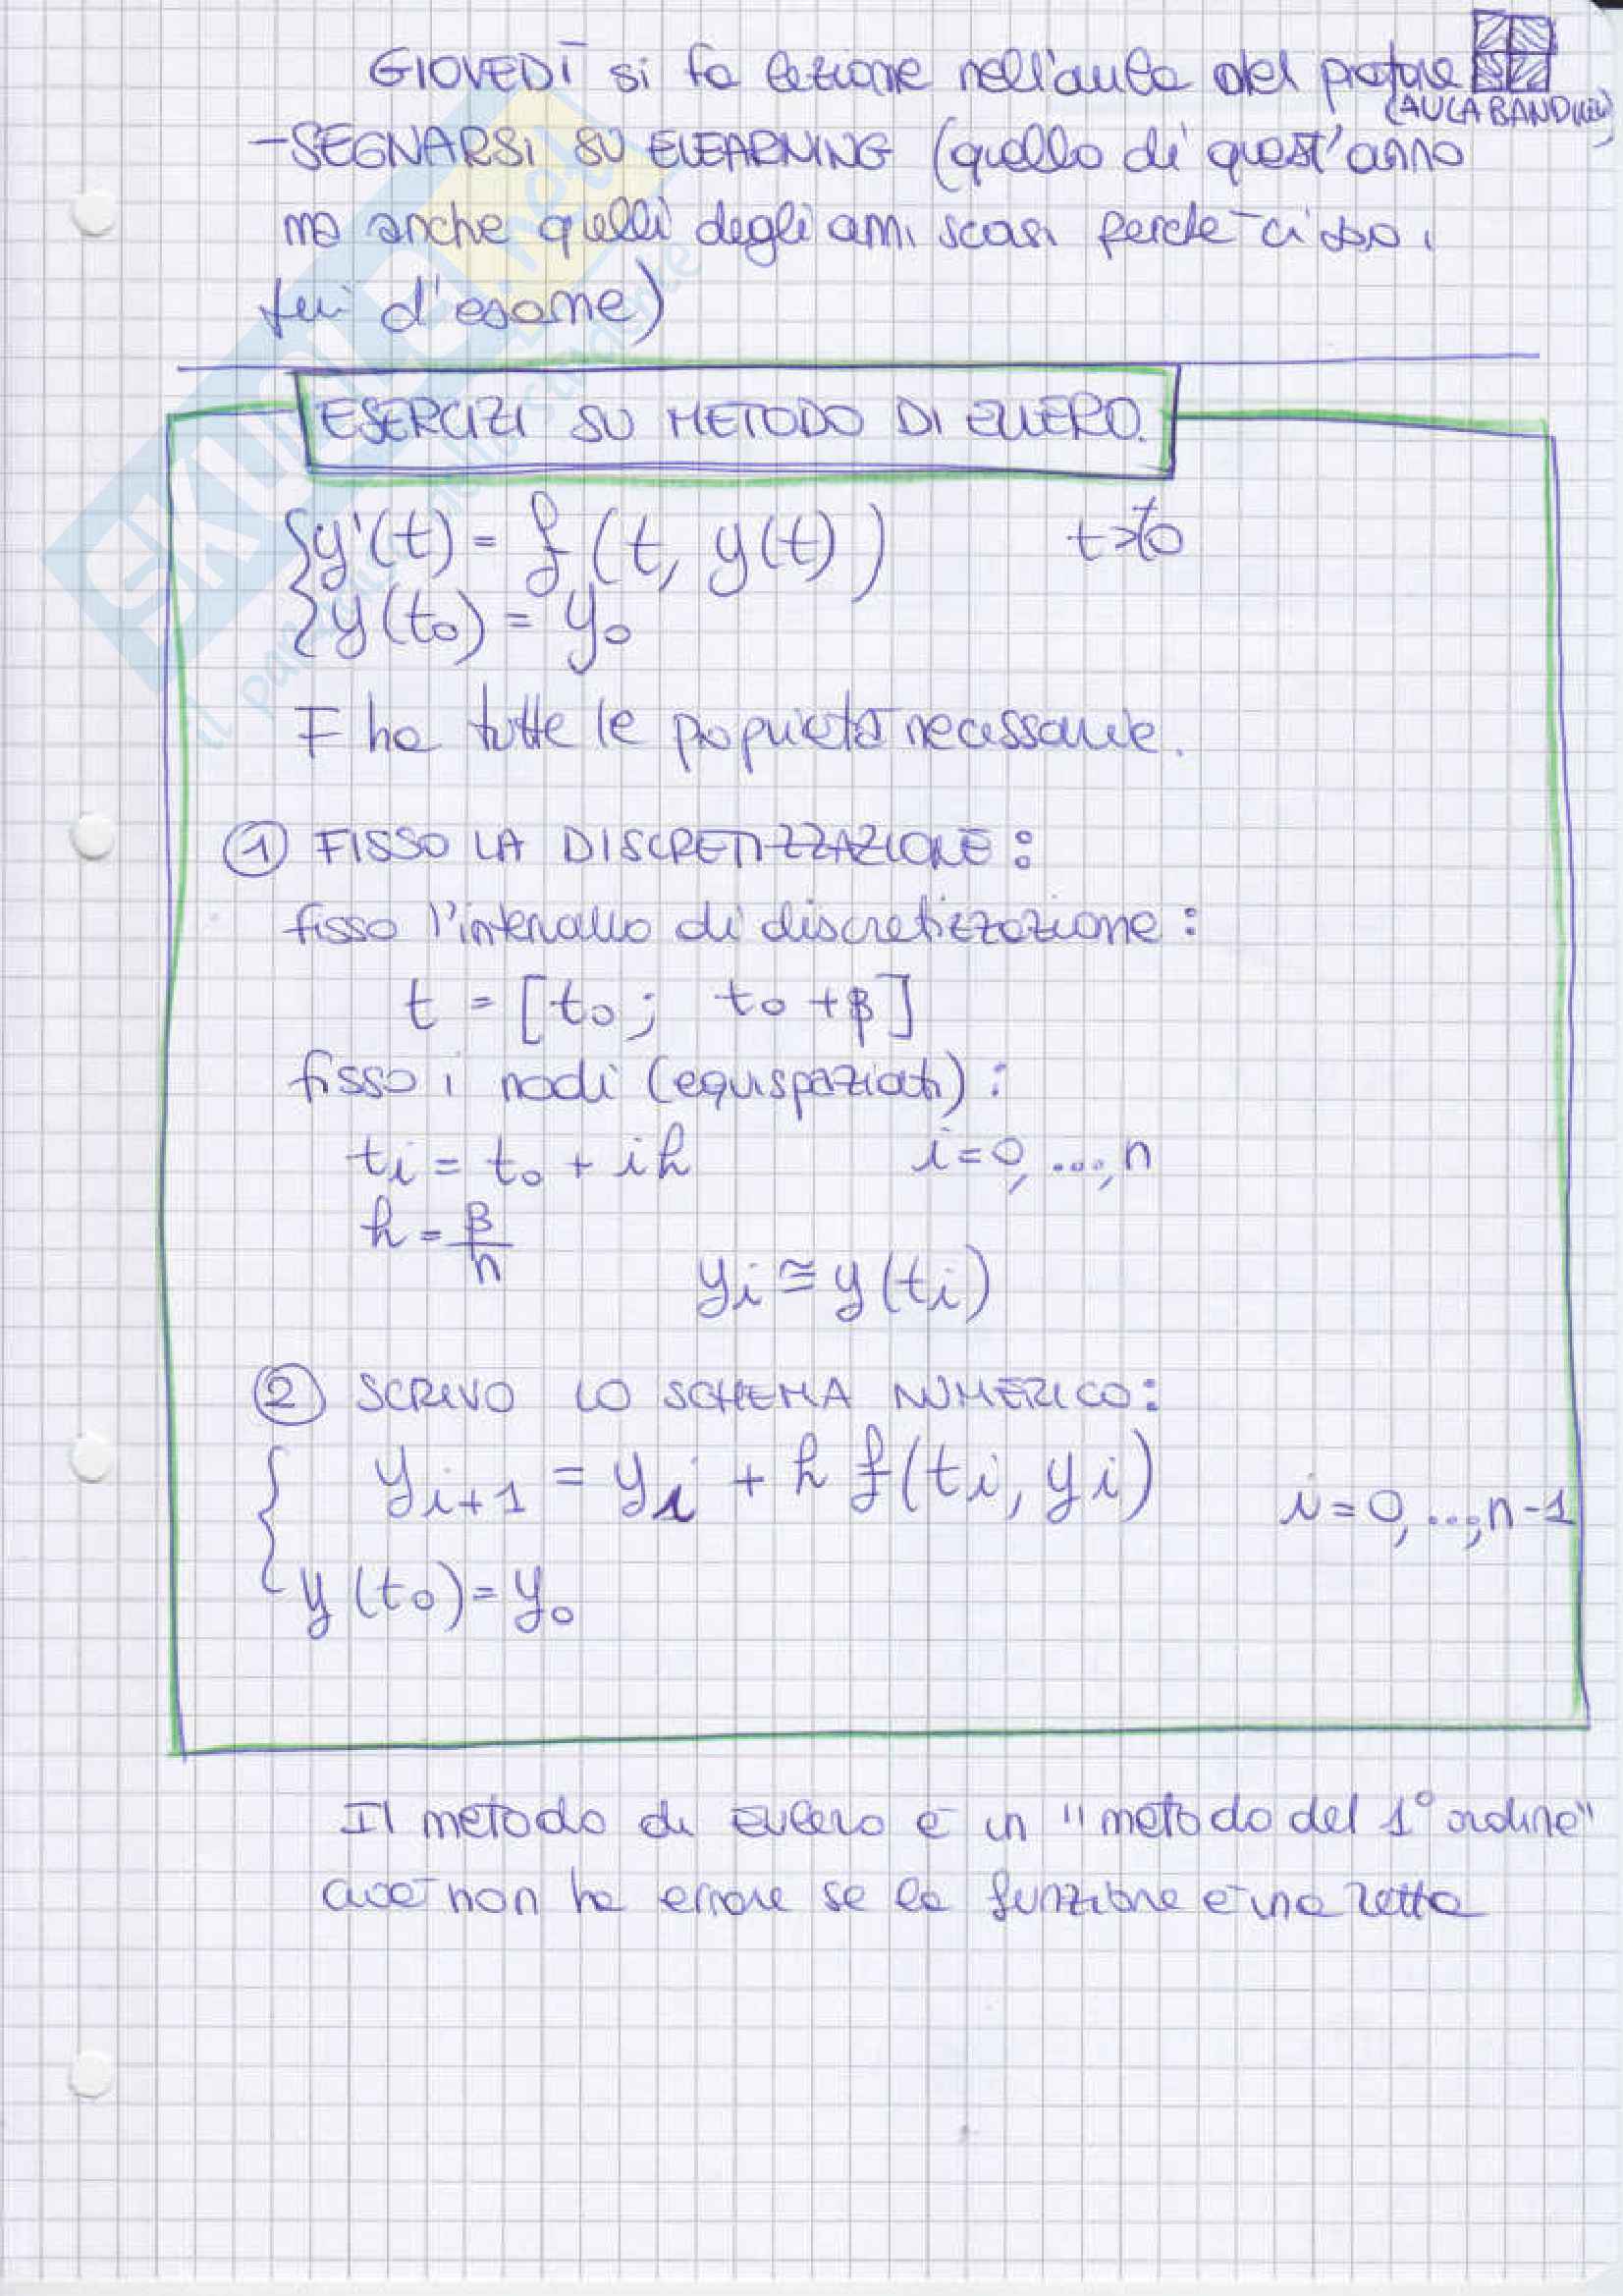 GIOVEDÌ si fa lezione nell'aula del prof
(AULA BAND
-SEGNARSI SU ELEARNING (quello di quest'anno
ma anche quelli degli anni scorsi perchè ci sono i
d'esame)
ESERCIZI SU METODO DI EULERO.
{y'(t) = f(t, y(t)) t>t0
{y(t0) = y0
F ha tutte le proprietà necessarie.
① FISSO LA DISCRETIZZAZIONE:
fisso l'intervallo di discretizzazione:
t = [t0; t0+β]
fisso i nodi (equispaziati):
ti = t0 + ih i=0,...,n
h = β/n
yi ≅ y(ti)
② SCRIVO LO SCHEMA NUMERICO:
{ yi+1 = yi + h f(ti, yi) i=0,...,n-1
y(t0)=y0
Il metodo di eulero è un "metodo del 1° ordine"
cioè non ha errore se la funzione è una retta
SKUOLA.net